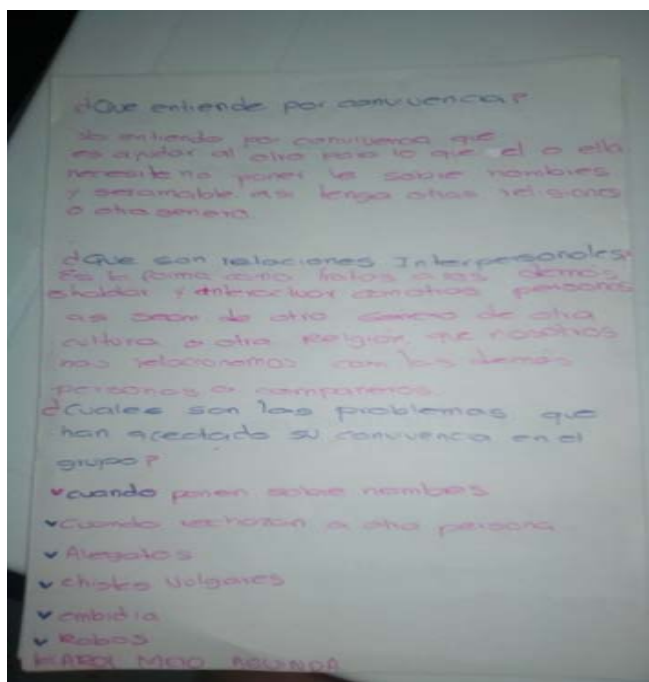 ¿Que entiende por convivencia?
Yo entiendo por convivencia que
es ayudar al otro para lo que el o ella
necesite no poner le sobre nombres
y ser amable asi tenga otras religiones
o otro genero.
¿Que son relaciones Interpersonales?
Es la forma como tratas a las demas
hablar y enteractuar con otras personas
asi sean de otro genero de otra
cultura o otra Religion, que nosotros
nos relacionamos con las demas
personas o compañeros.
¿cuales son los problemas que
han acectado su convivencia en el
grupo?
cuando ponen sobre nombres
cuando rechazan a otra persona
Alegatos
chistes Volgares
embidia
Robos